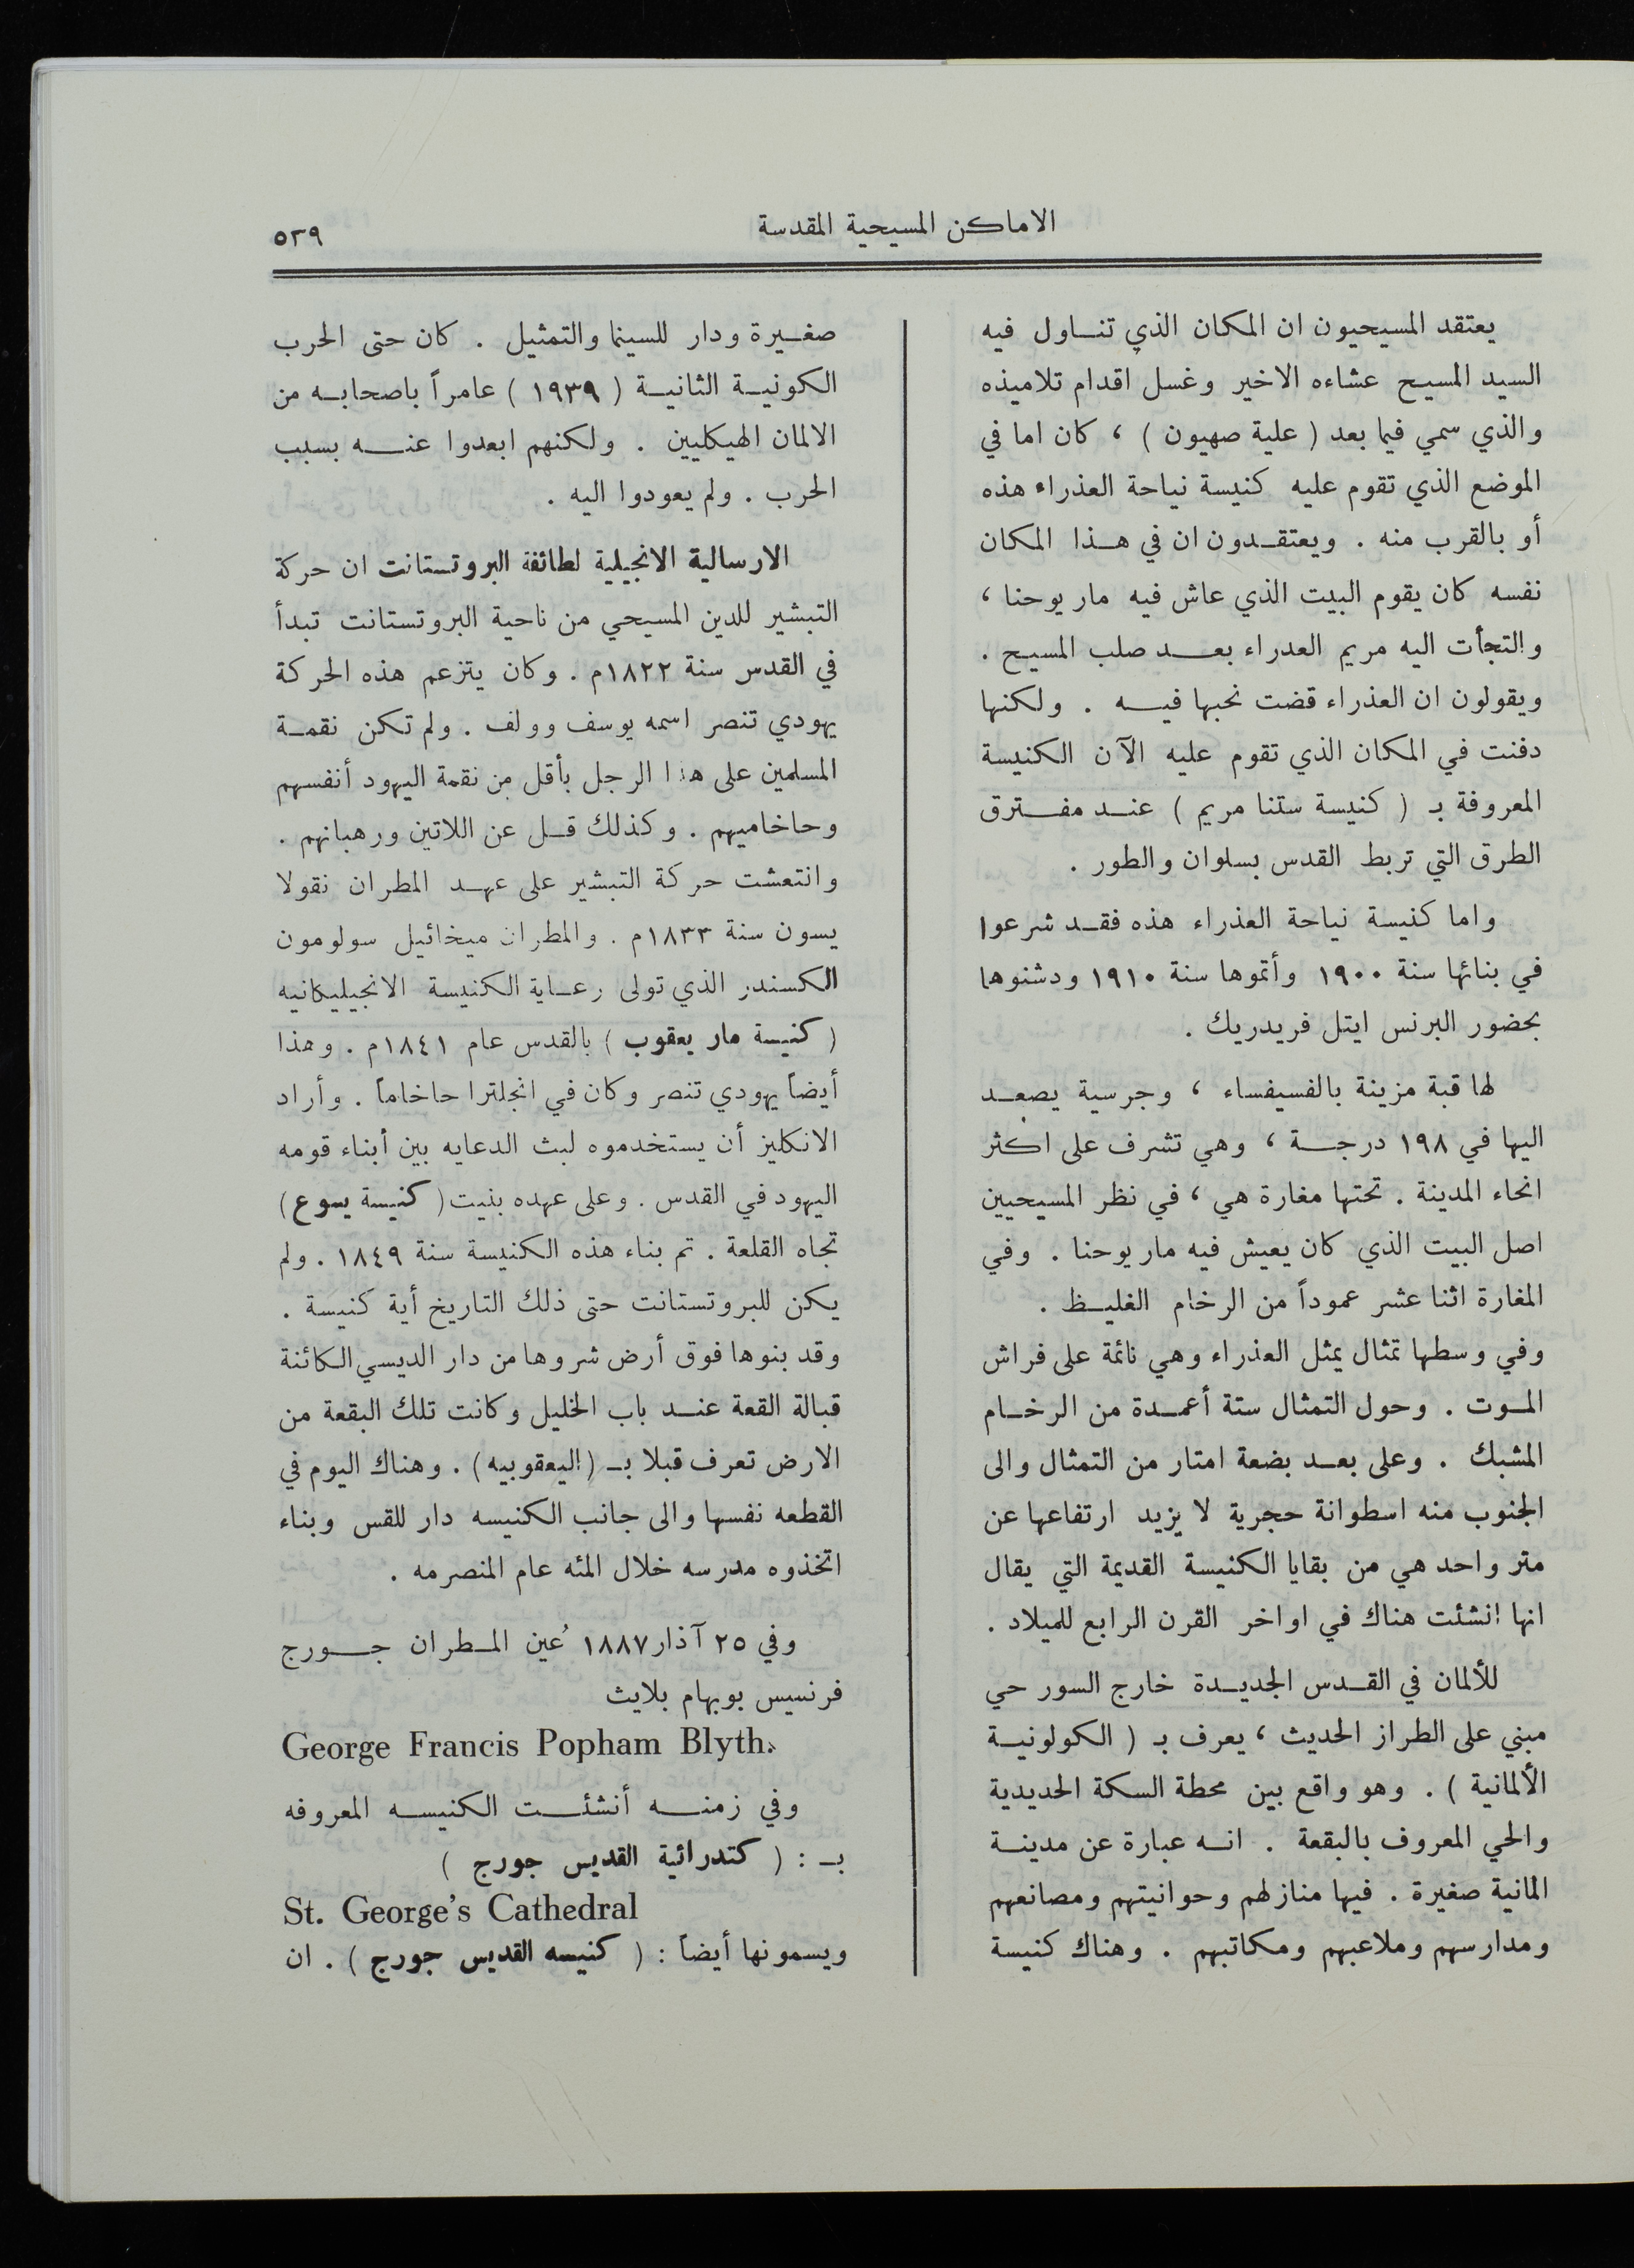 الاماكن المسيحية المقدسة
٥٣٩
يعتقد المسيحيون ان المكان الذي تناول فيه
السيد المسيح عشاءه الاخير وغسل اقدام تلاميذه
والذي سمي فيما بعد ( علية صهيون ) ، كان اما في
الموضع الذي تقوم عليه كنيسة نياحة العذراء هذه
أو بالقرب منه . ويعتقدون ان في هذا المكان
نفسه كان يقوم البيت الذي عاش فيه مار يوحنا ،
والتجأت اليه مريم العدراء بعد صلب المسيح .
ويقولون ان العذراء قضت نحبها فيه . ولكنها
دفنت في المكان الذي تقوم عليه الآن الكنيسة
المعروفة بـ ( كنيسة ستنا مريم ) عند مفترق
الطرق التي تربط القدس بسلوان والطور .
واما كنيسة نياحة العذراء هذه فقد شرعوا
في بنائها سنة ١٩٠٠ وأتموها سنة ١٩١٠ ودشنوها
بحضور البرنس ايتل فريدريك .
لها قبة مزينة بالفسيفساء ، وجرسية يصعد
اليها في ١٩٨ درجة ، وهي تشرف على اكثر
انحاء المدينة . تحتها مغارة هي ، في نظر المسيحيين
اصل البيت الذي كان يعيش فيه مار يوحنا . وفي
المغارة اثنا عشر عموداً من الرخام الغليظ .
وفي وسطها تمثال يمثل العذراء وهي نائمة على فراش
الموت . وحول التمثال ستة أعمدة من الرخام
المشبك . وعلى بعد بضعة امتار من التمثال والى
الجنوب منه اسطوانة حجرية لا يزيد ارتفاعها عن
متر واحد هي من بقايا الكنيسة القديمة التي يقال
انها انشئت هناك في اواخر القرن الرابع للميلاد .
للألمان في القدس الجديدة خارج السور حي
مبني على الطراز الحديث ، يعرف بـ ( الكولونية
الألمانية ) . وهو واقع بين محطة السكة الحديدية
والحي المعروف بالبقعة . انه عبارة عن مدينة
المانية صغيرة . فيها منازلهم وحوانيتهم ومصانعهم
ومدارسهم وملاعبهم ومكاتبهم . وهناك كنيسة
صغيرة ودار للسينما والتمثيل . كان حتى الحرب
الكونية الثانية ( ١٩٣٩ ) عامراً باصحابه من
الالمان الهيكليين . ولكنهم ابعدوا عنه بسبب
الحرب . ولم يعودوا اليه .
الارسالية الانجيلية لطائفة البروتستانت ان حركة
التبشير للدين المسيحي من ناحية البروتستانت تبدأ
في القدس سنة ١٨٢٢م . وكان يتزعم هذه الحركة
يهودي تنصر اسمه يوسف وولف . ولم تكن نقمة
المسلمين على هذا الرجل بأقل من نقمة اليهود أنفسهم
وحاخاميهم . وكذلك قل عن اللاتين ورهبانهم .
وانتعشت حركة التبشير على عهد المطران نقولا
يسون سنة ١٨٣٣م . والمطران ميخائيل سولومون
الكسندر الذي تولى رعاية الكنيسة الانجيليكانيه
( كنيسة مار يعقوب ) بالقدس عام ١٨٤١م . وهذا
أيضاً يهودي تنصر وكان في انجلترا حاخاماً . وأراد
الانكليز أن يستخدموه لبث الدعايه بين أبناء قومه
اليهود في القدس . وعلى عهده بنيت ( كنيسة يسوع )
تجاه القلعة . تم بناء هذه الكنيسة سنة ١٨٤٩ . ولم
يكن للبروتستانت حتى ذلك التاريخ أية كنيسة .
وقد بنوها فوق أرض شروها من دار الديسي الكائنة
قبالة القعة عند باب الخليل وكانت تلك البقعة من
الارض تعرف قبلا بـ (اليعقوبيه) . وهناك اليوم في
القطعه نفسها والى جانب الكنيسه دار للقس وبناء
اتخذوه مدرسه خلال المئه عام المنصرمه .
وفي ٢٥ آذار ١٨٨٧ عُين المطران جورج
فرنسيس بوبهام بلايث
George Francis Popham Blyth.
وفي زمنه أنشئت الكنيسه المعروفه
بـ : ( كتدرائية القديس جورج )
St. George's Cathedral
ويسمونها أيضاً : ( كنيسه القديس جورج ) . ان